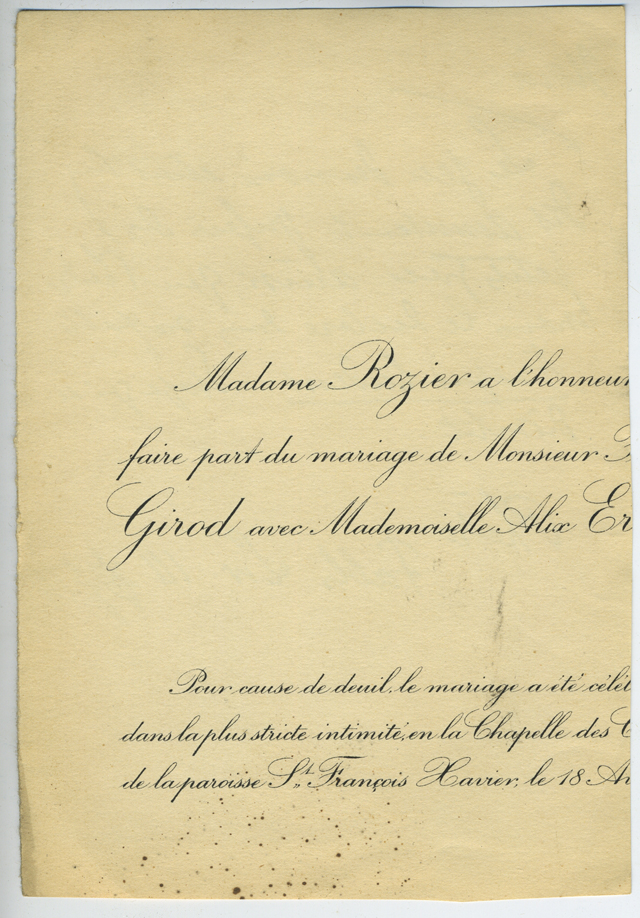 Madame Rozier a l'honneur
faire part du mariage de Monsieur
Girod avec Mademoiselle Alix Er
Pour cause de deuil, le mariage a été célé
dans la plus stricte intimité, en la Chapelle des
de la paroisse S.t François Xavier, le 18 A